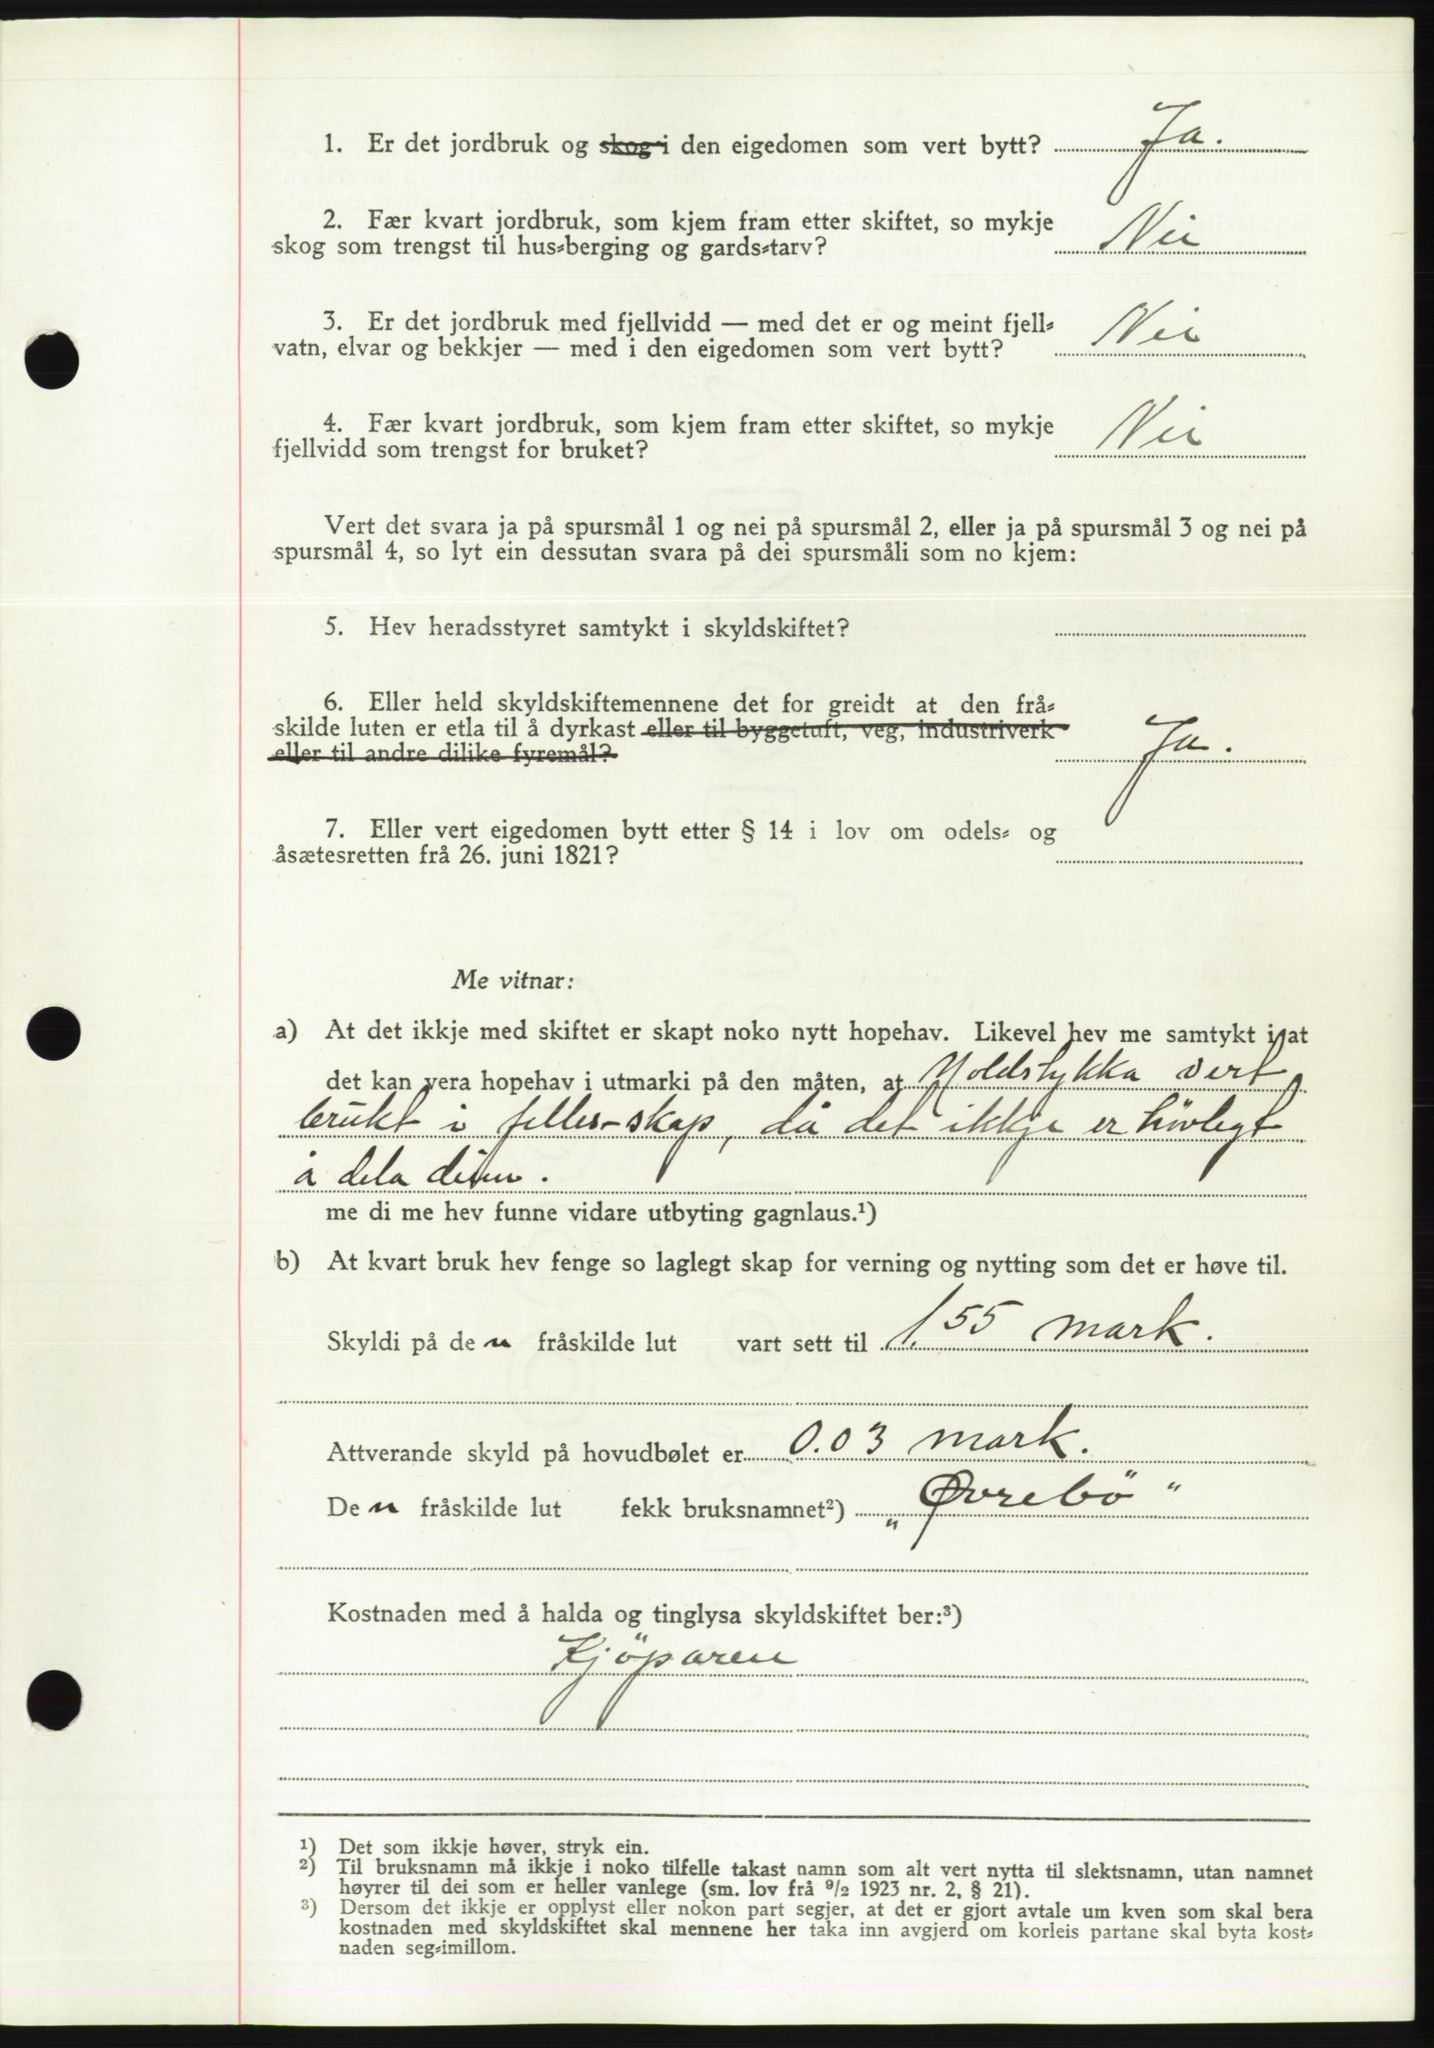 1. Er det jordbruk og skog i den eigedomen som vert bytt? Ja.
2. Fær kvart jordbruk, som kjem fram etter skiftet, so mykje
skog som trengst til hus-berging og gards-tarv? Nei
3. Er det jordbruk med fjellvidd — med det er og meint fjell-
vatn, elvar og bekkjer — med i den eigedomen som vert bytt? Nei
4. Fær kvart jordbruk, som kjem fram etter skiftet, so mykje
fjellvidd som trengst for bruket? Nei
Vert det svara ja på spursmål 1 og nei på spursmål 2, eller ja på spursmål 3 og nei på
spursmål 4, so lyt ein dessutan svara på dei spursmåli som no kjem:
5. Hev heradsstyret samtykt i skyldskiftet?
6. Eller held skyldskiftemennene det for greidt at den frå-
skilde luten er etla til å dyrkast eller til byggetuft, veg, industriverk
eller til andre dilike fyremål? Ja.
7. Eller vert eigedomen bytt etter § 14 i lov om odels- og
åsætesretten frå 26. juni 1821?
Me vitnar:
a) At det ikkje med skiftet er skapt noko nytt hopehav. Likevel hev me samtykt i at
det kan vera hopehav i utmarki på den måten, at Moldstykka vert
brukt i felles-skap, då det ikkje er hövlegt
å dela deim.
me di me hev funne vidare utbyting gagnlaus.¹)
b) At kvart bruk hev fenge so laglegt skap for verning og nytting som det er høve til.
Skyldi på de n fråskilde lut vart sett til 1,55 mark.
Attverande skyld på hovudbølet er 0.03 mark.
De n fråskilde lut fekk bruksnamnet²) „Øvrebö"
Kostnaden med å halda og tinglysa skyldskiftet ber:³)
Kjöparen
¹) Det som ikkje høver, stryk ein.
²) Til bruksnamn må ikkje i noko tilfelle takast namn som alt vert nytta til slektsnamn, utan namnet
høyrer til dei som er heller vanlege (sm. lov frå ⁹/₂ 1923 nr. 2, § 21).
³) Dersom det ikkje er opplyst eller nokon part segjer, at det er gjort avtale um kven som skal bera
kostnaden med skyldskiftet skal mennene her taka inn avgjerd om korleis partane skal byta kost-
naden seg-imillom.